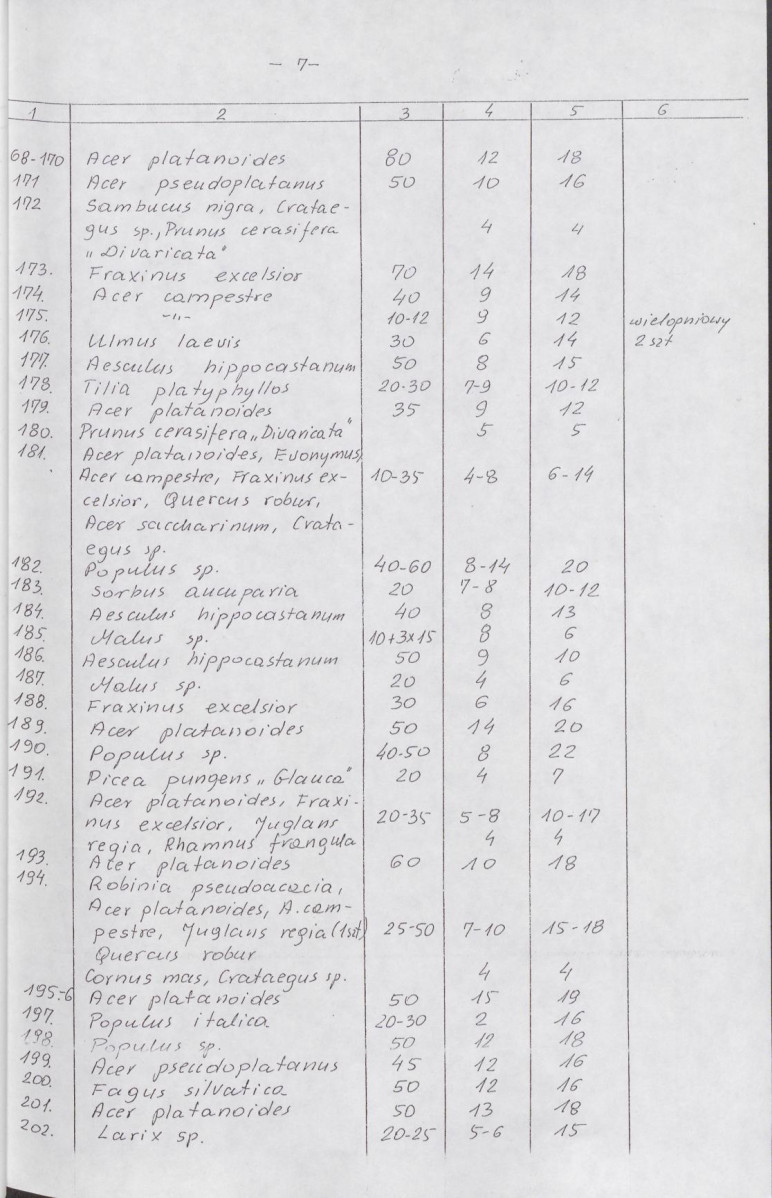 - 7-
1 2 3 4 5 6
68-170 Acer platanoides 80 12 18
171 Acer pseudoplatanus 50 10 16
172 Sambucus nigra, Cratae-
gus sp., Prunus cerasifera 4 4
„Divaricata"
173. Fraxinus excelsior 70 14 18
174. Acer campestre 40 9 14
175. -"- 10-12 9 12 wielopniowy
176. Ulmus laevis 30 6 14 2 szt
177. Aesculus hippocastanum 50 8 15
178. Tilia platyphyllos 20-30 7-9 10-12
179. Acer platanoides 35 9 12
180. Prunus cerasifera „Divaricata" 5 5
181. Acer platanoides, Evonymus,
Acer campestre, Fraxinus ex- 10-35 4-8 6-14
celsior, Quercus robur,
Acer saccharinum, Crata-
egus sp.
182. Populus sp. 40-60 8-14 20
183. Sorbus aucuparia 20 7-8 10-12
184. Aesculus hippocastanum 40 8 13
185. Malus sp. 10+3x15 8 6
186. Aesculus hippocastanum 50 9 10
187. Malus sp. 20 4 6
188. Fraxinus excelsior 30 6 16
189. Acer platanoides 50 14 20
190. Populus sp. 40-50 8 22
191. Picea pungens „Glauca" 20 4 7
192. Acer platanoides, Fraxi-
nus excelsior, Juglans 20-35 5-8 10-17
regia, Rhamnus frangula 4 4
193. Acer platanoides 60 10 18
194. Robinia pseudoacacia,
Acer platanoides, A. cam-
pestre, Juglans regia (1szt) 25-50 7-10 15-18
Quercus robur
Cornus mas, Crataegus sp. 4 4
195-6 Acer platanoides 50 15 19
197. Populus italica 20-30 2 16
198. Populus sp. 50 12 18
199. Acer pseudoplatanus 45 12 16
200. Fagus silvatica 50 12 16
201. Acer platanoides 50 13 18
202. Larix sp. 20-25 5-6 15